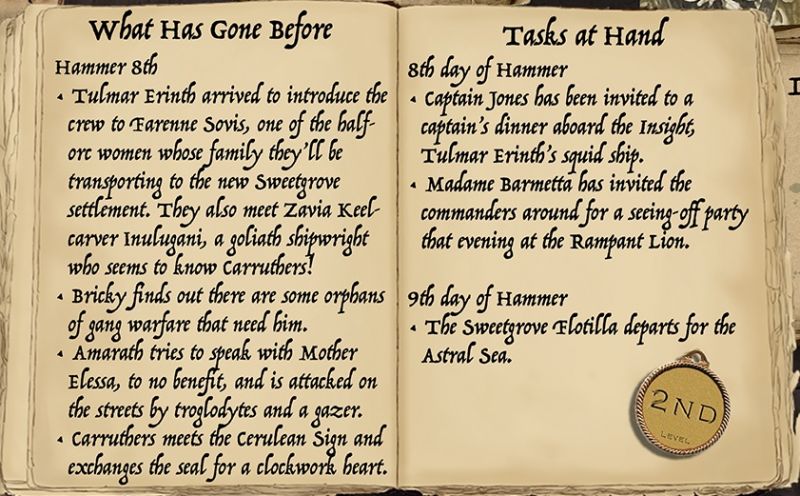 What Has Gone Before
Hammer 8th
• Tulmar Erinth arrived to introduce the
crew to Farenne Sovis, one of the half-
orc women whose family they'll be
transporting to the new Sweetgrove
settlement. They also meet Zavia Keel-
carver Inulugani, a goliath shipwright
who seems to know Carruthers!
• Bricky finds out there are some orphans
of gang warfare that need him.
• Amarath tries to speak with Mother
Elessa, to no benefit, and is attacked on
the streets by troglodytes and a gazer.
• Carruthers meets the Cerulean Sign and
exchanges the seal for a clockwork heart.
Tasks at Hand
8th day of Hammer
• Captain Jones has been invited to a
captain's dinner aboard the Insight,
Tulmar Erinth's squid ship.
• Madame Barmetta has invited the
commanders around for a seeing-off party
that evening at the Rampant Lion.
9th day of Hammer
• The Sweetgrove Flotilla departs for the
Astral Sea.
2ND
LEVEL